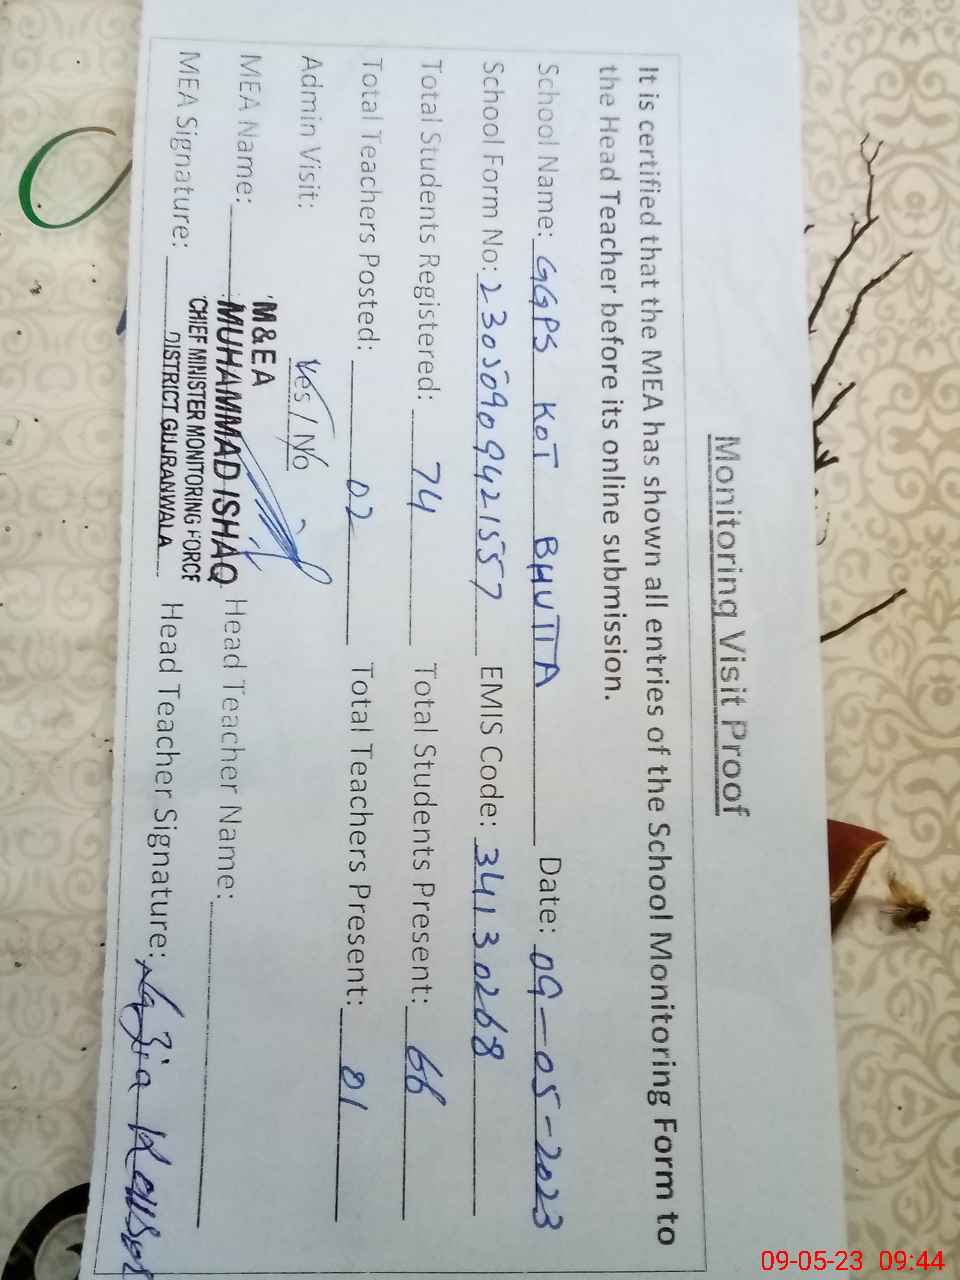 Monitoring Visit Proof
It is certified that the MEA has shown all entries of the School Monitoring Form to
the Head Teacher before its online submission.
School Name: GGPS KOT BHUTTA Date: 09-05-2023
School Form No: 23050909421557 EMIS Code: 34130268
Total Students Registered: 74 Total Students Present: 66
Total Teachers Posted: 02 Total Teachers Present: 01
Admin Visit: Yes / No
M&EA
MEA Name: MUHAMMAD ISHAQ Head Teacher Name:
CHIEF MINISTER MONITORING FORCE
MEA Signature: DISTRICT GUJRANWALA Head Teacher Signature: Nazia Kausar
09-05-23 09:44